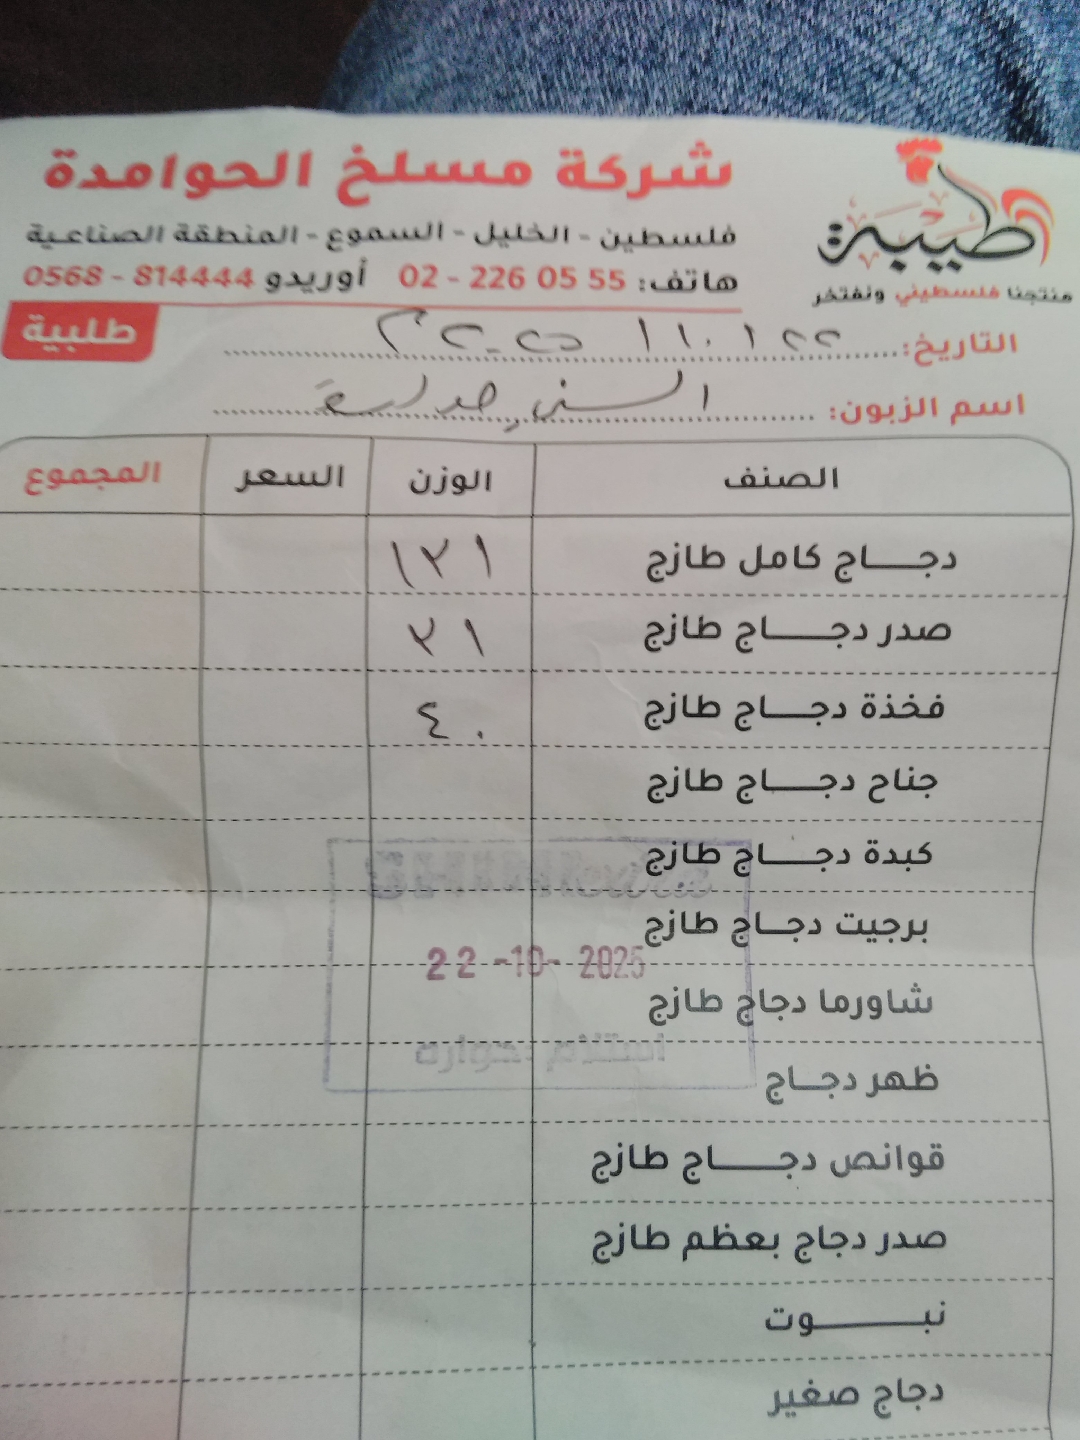 شركة مسلخ الحوامدة
فلسطين - الخليل - السموع - المنطقة الصناعية
هاتف: 55 05 226 - 02 أوريدو 814444 - 0568
طيبة
منتجنا فلسطيني ونفتخر
طلبية
التاريخ:
اسم الزبون: السني
الصنف الوزن السعر المجموع
دجاج كامل طازج ١٢١
صدر دجاج طازج ٢١
فخذة دجاج طازج ٤٠
جناح دجاج طازج
كبدة دجاج طازج
برجيت دجاج طازج
22-10-2025
شاورما دجاج طازج
استلام
ظهر دجاج
قوانص دجاج طازج
صدر دجاج بعظم طازج
نبوت
دجاج صغير